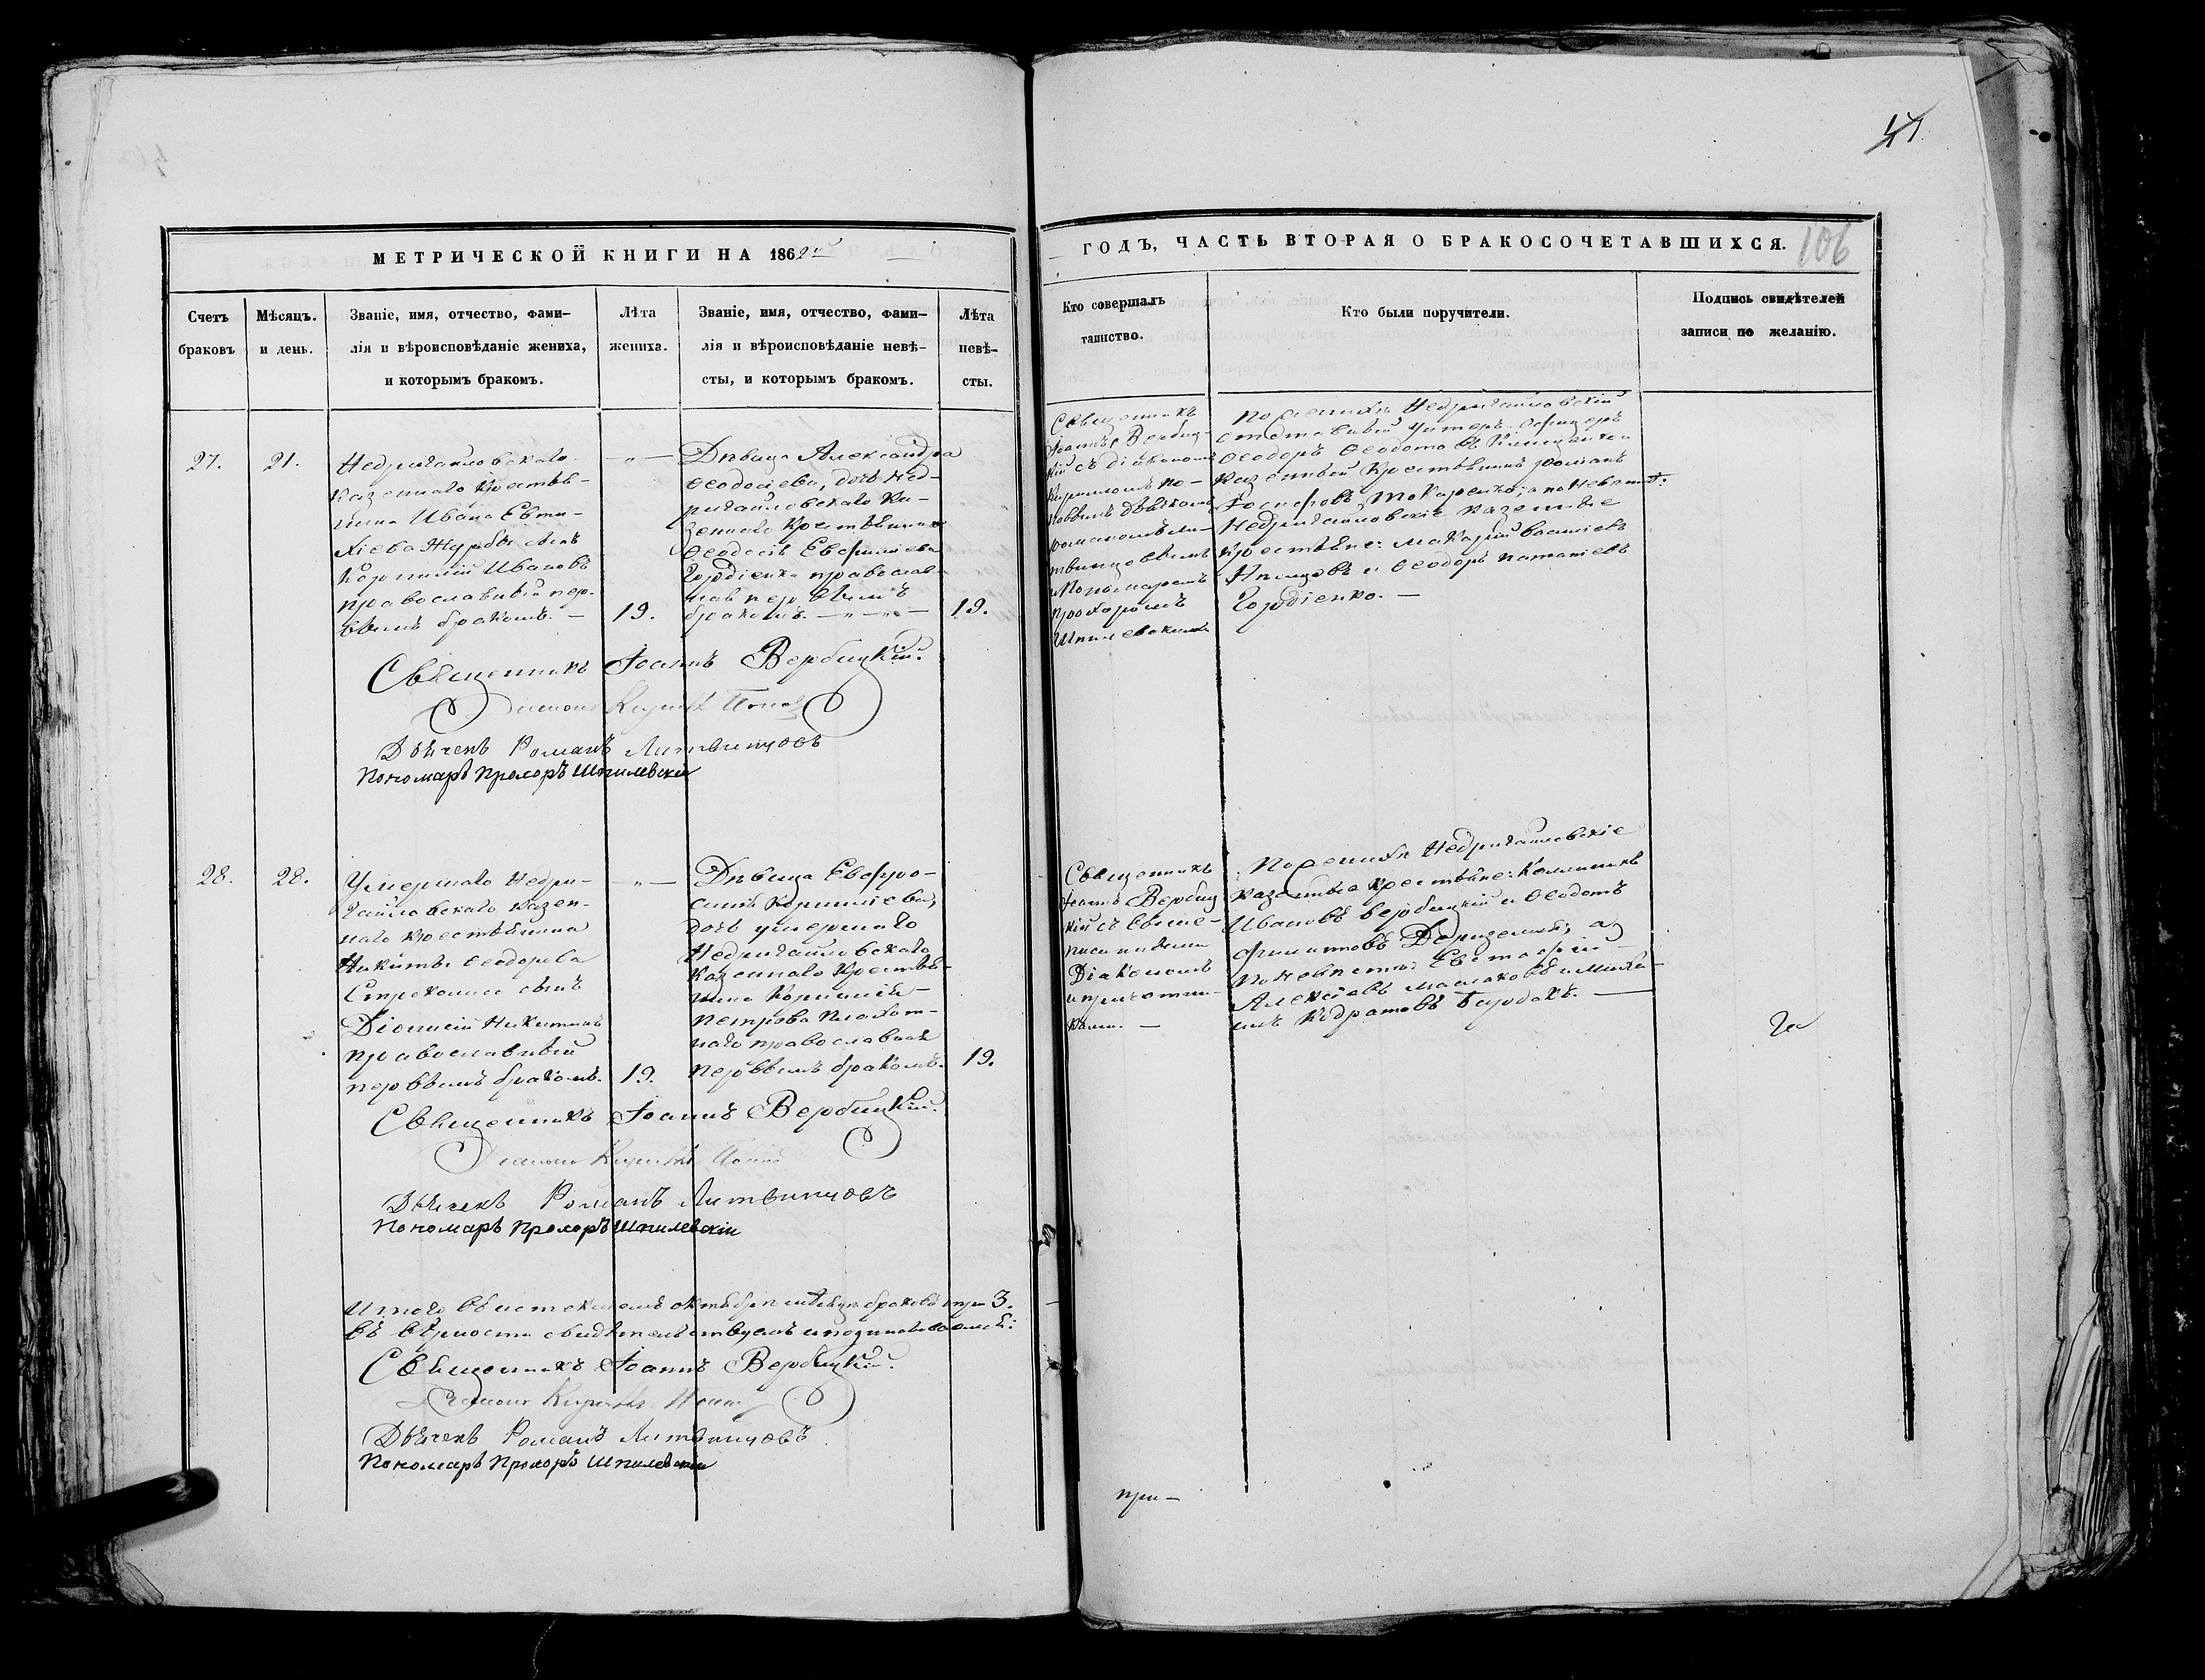 41
МЕТРИЧЕСКОЙ КНИГИ НА 1862й
ГОДЪ, ЧАСТЬ ВТОРАЯ О БРАКОСОЧЕТАВШИХСЯ.
106
Счетъ
браковъ
Мѣсяцъ.
и день.
Званіе, имя, отчество, фами–
лія и вѣроисповѣданіе жениха,
и которымъ бракомъ.
Лѣта
жениха.
Званіе, имя, отчество, фами–
лія и вѣроисповѣданіе невѣ–
сты, и которымъ бракомъ.
Лѣта
невѣ–
сты.
Кто совершалъ
таинство.
Кто были поручители.
Подпись свидѣтелей
записи по желанію.
27.
21.
Недригайловскаго
казеннаго крестья–
нина Ивана Евти–
хіева Журбы сынъ
Корнилій Ивановъ
православный пер–
вымъ бракомъ. —
19.
Дѣвица Александра
Ѳеодосіева, дочь Нед–
ригайловскаго ка–
зеннаго крестьянина
Ѳеодосія Евфиміева
Гордіенка православ–
ная первымъ
бракомъ.
19.
Священникъ
Іоаннъ Вербиц–
кій съ діакономъ
Кирилломъ По–
повымъ дьячкомъ
Романомъ Ли–
твинцовымъ
Пономаремъ
Прохоромъ
Шпилевскимъ
По женихѣ Недригайловскій
отставный унтеръ-офицеръ
Ѳеодоръ Ѳеодотовъ
казенный крестьянинъ Романъ
Іосифовъ Токаренко; а по невѣстѣ:
Недригайловскіе казенные
крестьяне: Макарій
и Ѳеодоръ
Гордіенко. —
Священникъ Іоаннъ Вербицкій.
Діаконъ Кириллъ Поповъ
Дьячекъ Романъ Литвинцовъ
Пономарь Прохоръ Шпилевскій
28.
28.
Умершаго Недри–
гайловскаго казен–
наго крестьянина
Никиты Ѳеодорова
сынъ
Діонисій Никитинъ
православный
первымъ бракомъ.
19.
Дѣвица Евфро–
синія Корниліева,
дочь умершаго
Недригайловскаго
казеннаго крестья–
нина Корнилія
Петрова
православная
первымъ бракомъ.
19.
Священникъ
Іоаннъ Вербиц
кій съ выше–
писанными
Діакономъ
и причетни–
ками. —
По женихѣ Недригайловскіе
казенные крестьяне: Каллиникъ
Ивановъ Вербицкій и Ѳеодотъ
а
по невѣстѣ: Евстафій
Алексѣевъ и Миха–
илъ Бардакъ. —
Священникъ Іоаннъ Вербицкій.
Діаконъ Кириллъ Поповъ
Дьячекъ Романъ Литвинцовъ
Пономарь Прохоръ Шпилевскій
Итого въ истекшемъ октябрѣ мѣсяцѣ браковъ три 3.
въ вѣрности свидѣтельствуемъ и подписываемся:
Священникъ Іоаннъ Вербицкій.
Діаконъ Кириллъ Поповъ
Дьячекъ Романъ Литвинцовъ
Пономарь Прохоръ Шпилевскій
при–